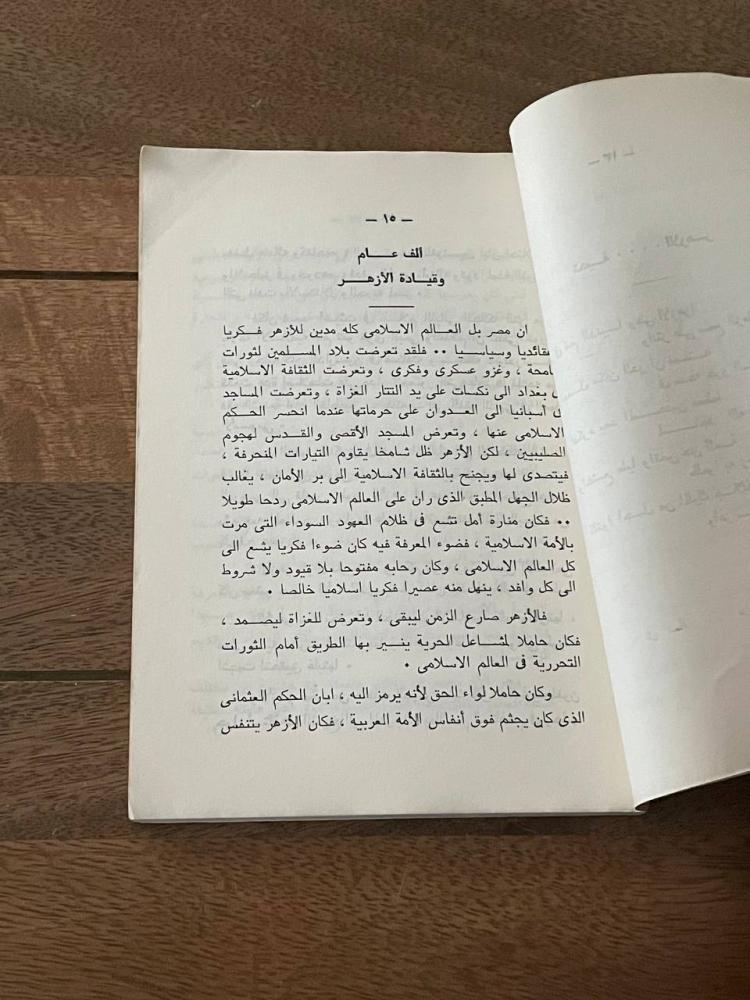 — ١٥ —
ألف عـــام
وقيادة الأزهـــر
ان مصر بل العالم الاسلامى كله مدين للأزهر فكريا
وسياسيا ٠٠ فلقد تعرضت بلاد المسلمين لثورات
، وغزو عسكرى وفكرى ، وتعرضت الثقافة الاسلامية
بغداد الى نكسات على يد التتار الغزاة ، وتعرضت المساجد
أسبانيا الى العدوان على حرماتها عندما انحسر الحكم
الاسلامى عنها ، وتعرض المسجد الأقصى والقدس لهجوم
الصليبيين ، لكن الأزهر ظل شامخا يقاوم التيارات المنحرفة ،
فيتصدى لها ويجنح بالثقافة الاسلامية الى بر الأمان ، يغالب
ظلال الجهل المطبق الذى ران على العالم الاسلامى ردحا طويلا
٠٠ فكان منارة أمل تشع فى ظلام العهود السوداء التى مرت
بالأمة الاسلامية ، فضوء المعرفة فيه كان ضوءا فكريا يشع الى
كل العالم الاسلامى ، وكان رحابه مفتوحا بلا قيود ولا شروط
الى كل وافد ، ينهل منه عصيرا فكريا اسلاميا خالصا ٠
فالأزهر صارع الزمن ليبقى ، وتعرض للغزاة ليصمد ،
فكان حاملا لمشاعل الحرية ينير بها الطريق أمام الثورات
التحررية فى العالم الاسلامى ٠
وكان حاملا لواء الحق لأنه يرمز اليه ، ابان الحكم العثمانى
الذى كان يجثم فوق أنفاس الأمة العربية ، فكان الأزهر يتنفس